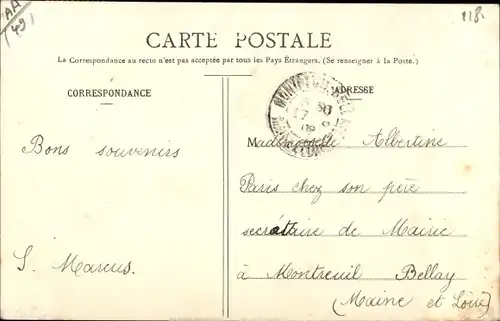 AA
(49)
218.
CARTE POSTALE
La Correspondance au recto n'est pas acceptée par tous les Pays Étrangers. (Se renseigner à la Poste.)
CORRESPONDANCE
ADRESSE
Bons souvenirs
S. Marcus.
Mademoiselle Albertine
Paris chez son père
secrétaire de Mairie
à Montreuil Bellay
(Maine et Loire)